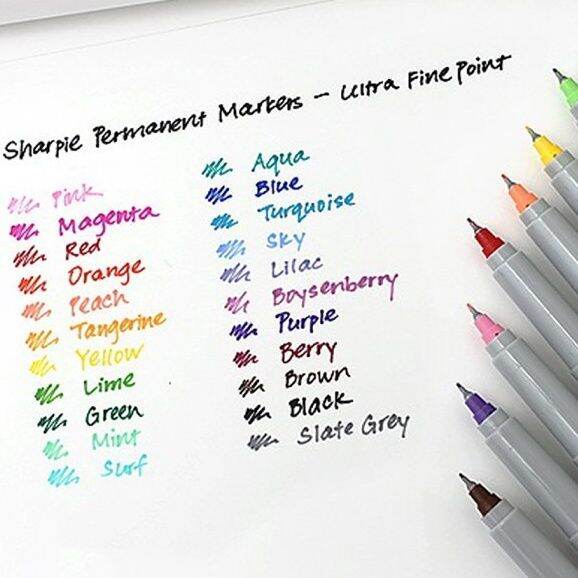 Sharpie Permanent Markers - Ultra Fine Point
Pink
Magenta
Red
Orange
Peach
Tangerine
Yellow
Lime
Green
Mint
Surf
Aqua
Blue
Turquoise
Sky
Lilac
Boysenberry
Purple
Berry
Brown
Black
Slate Grey